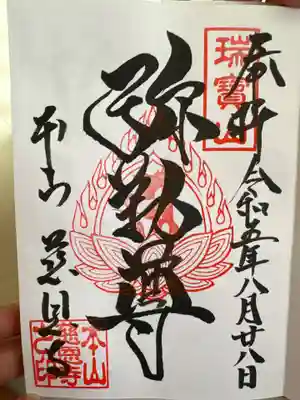 奉拝 令和五年八月廿八日
瑞寶山
弥勒尊
本山 慈恩寺
本山
慈恩寺
之印